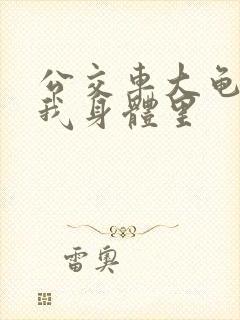 公交车大龟
我身體里
雷奥